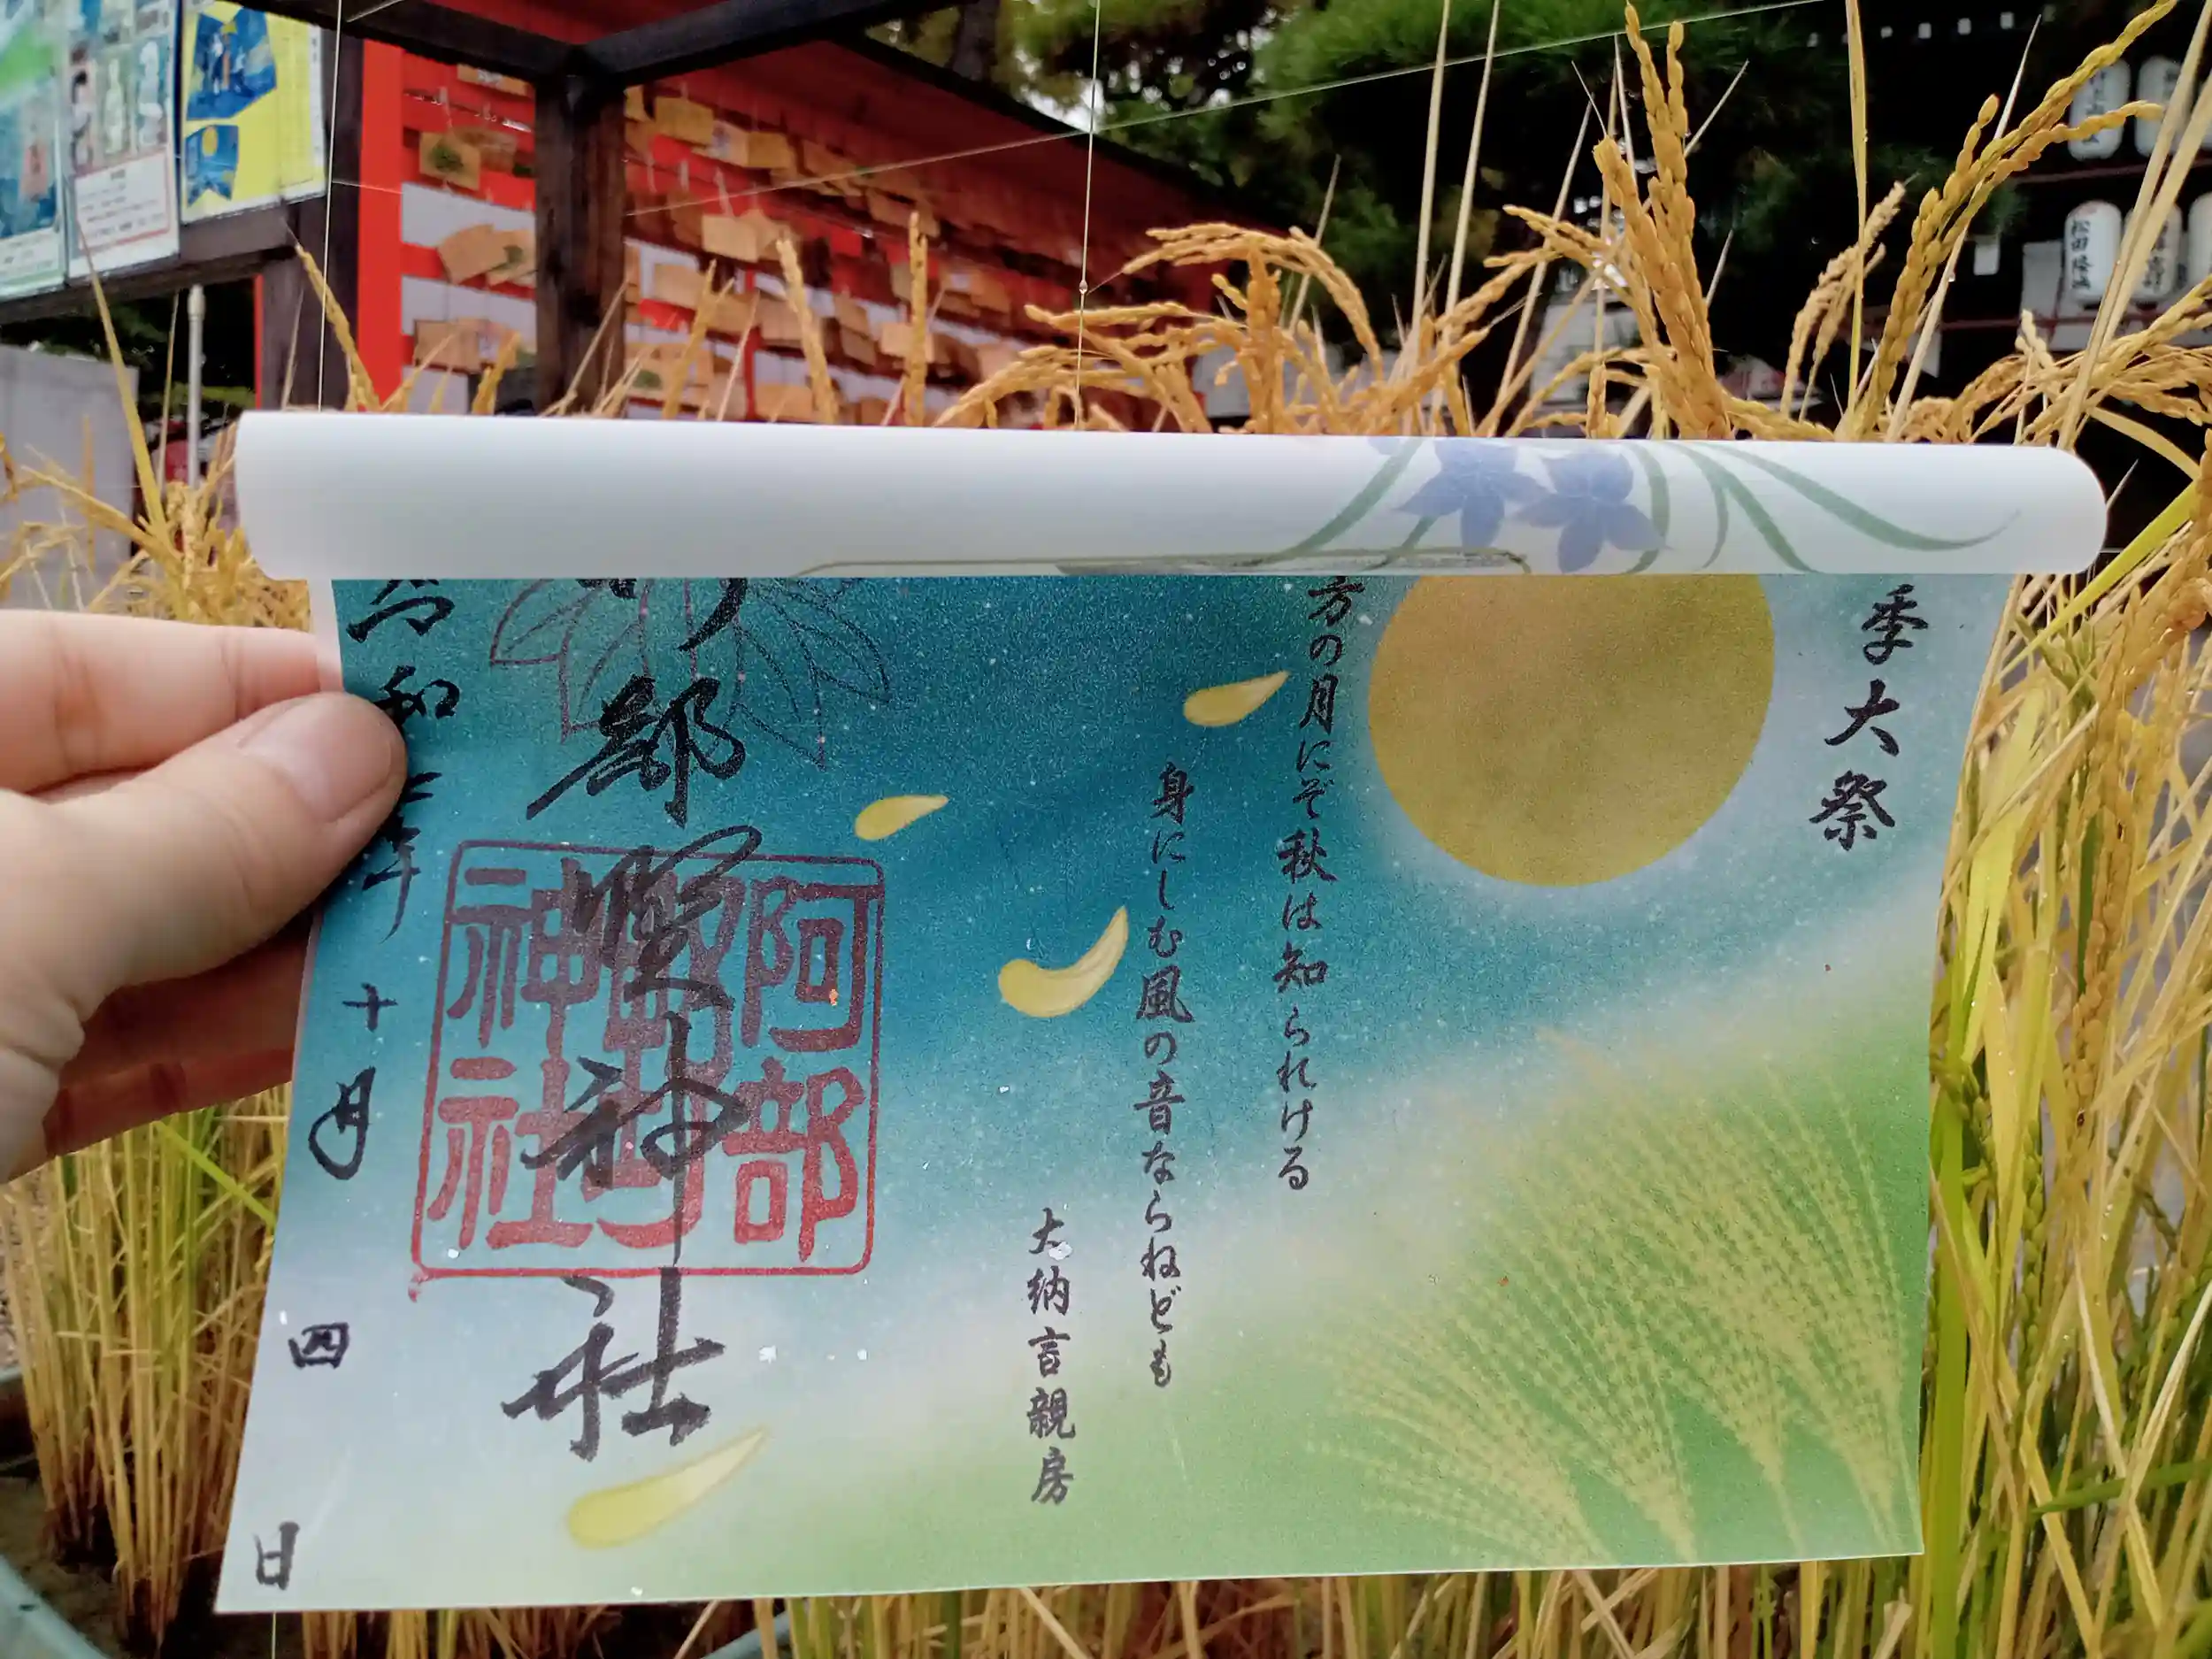 季大祭
方の月にぞ秋は知られける
身にしむ風の音ならねども
大納言親房
部野神社
阿部
野
神社
令和三年
十月
四
日